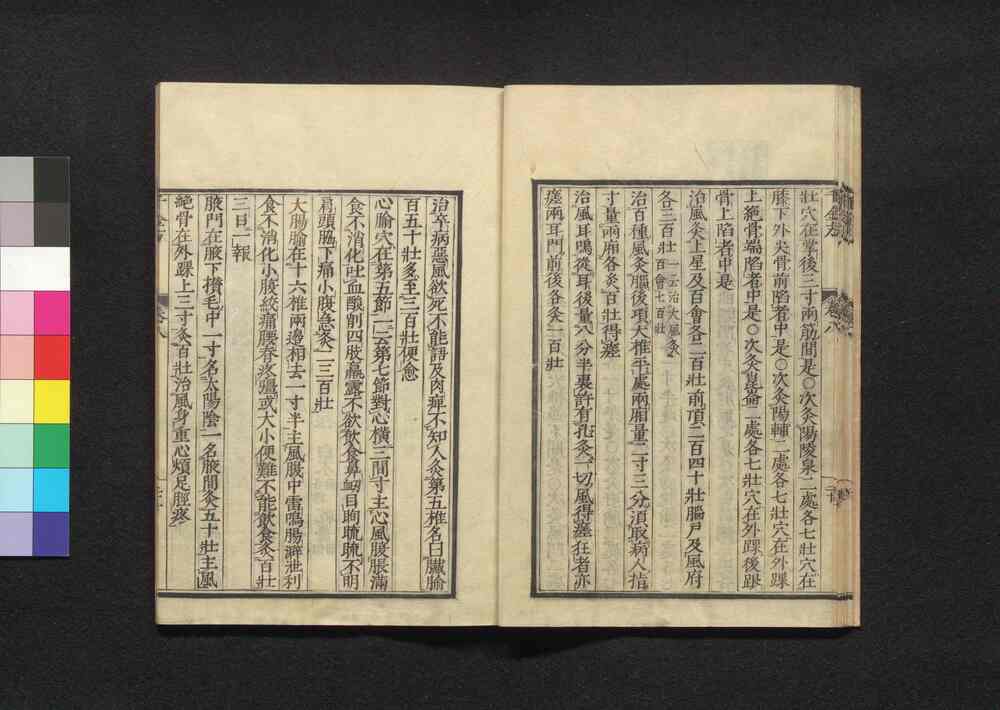 壯穴在掌後三寸兩筋間是○次灸陽陵泉二處各七壯穴在
膝下外尖骨前陷者中是○次灸陽輔二處各七壯穴在外踝
上絶骨端陷者中是○次灸崑崙二處各七壯穴在外踝後跟
骨上陷者中是
治風灸上星及百會各二百壯前頂二百四十壯腦戶及風府
各三百壯一云治大風灸百會七百壯
治百種風灸腦後項大椎平處兩廂量二寸三分須取病人指
寸量兩廂各灸百壯得瘥
治風耳鳴從耳後量八分半裏許有孔灸一切風得瘥狂者亦
瘥兩耳門前後各灸一百壯
治卒病惡風欲死不能語及肉痺不知人灸第五椎名曰臟腧
百五十壯多至三百壯便愈
心腧穴在第五節一云第七節對心橫三間寸主心風腹脹滿
食不消化吐血酸削四肢羸露不欲飲食鼻衂目眴䀮䀮不明
肩頭脇下痛小腹急灸二三百壯
大腸腧在十六椎兩邊相去一寸半主風腹中雷鳴腸澼泄利
食不消化小腹絞痛腰脊疼彊或大小便難不能飲食灸百壯
三日一報
腋門在腋下攢毛中一寸名太陽陰一名腋間灸五十壯主風
絶骨在外踝上三寸灸百壯治風身重心煩足脛疼
卷八